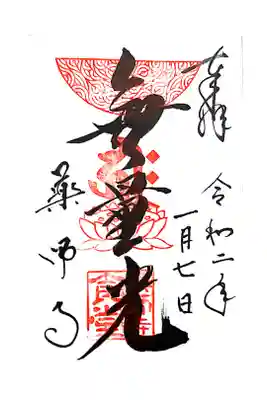 奉拝
令和二年
一月七日
無量光
薬師寺